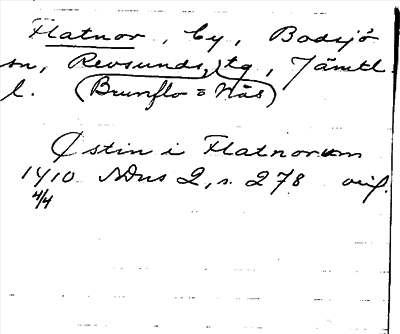 Flatnor, by, Bodsjö
sn, Revsunds, tg, Jämtl.
l. (Brunflo o Näs)
Østin i Flatnorum
1410 NDns 2, s. 278 orig.
4/4